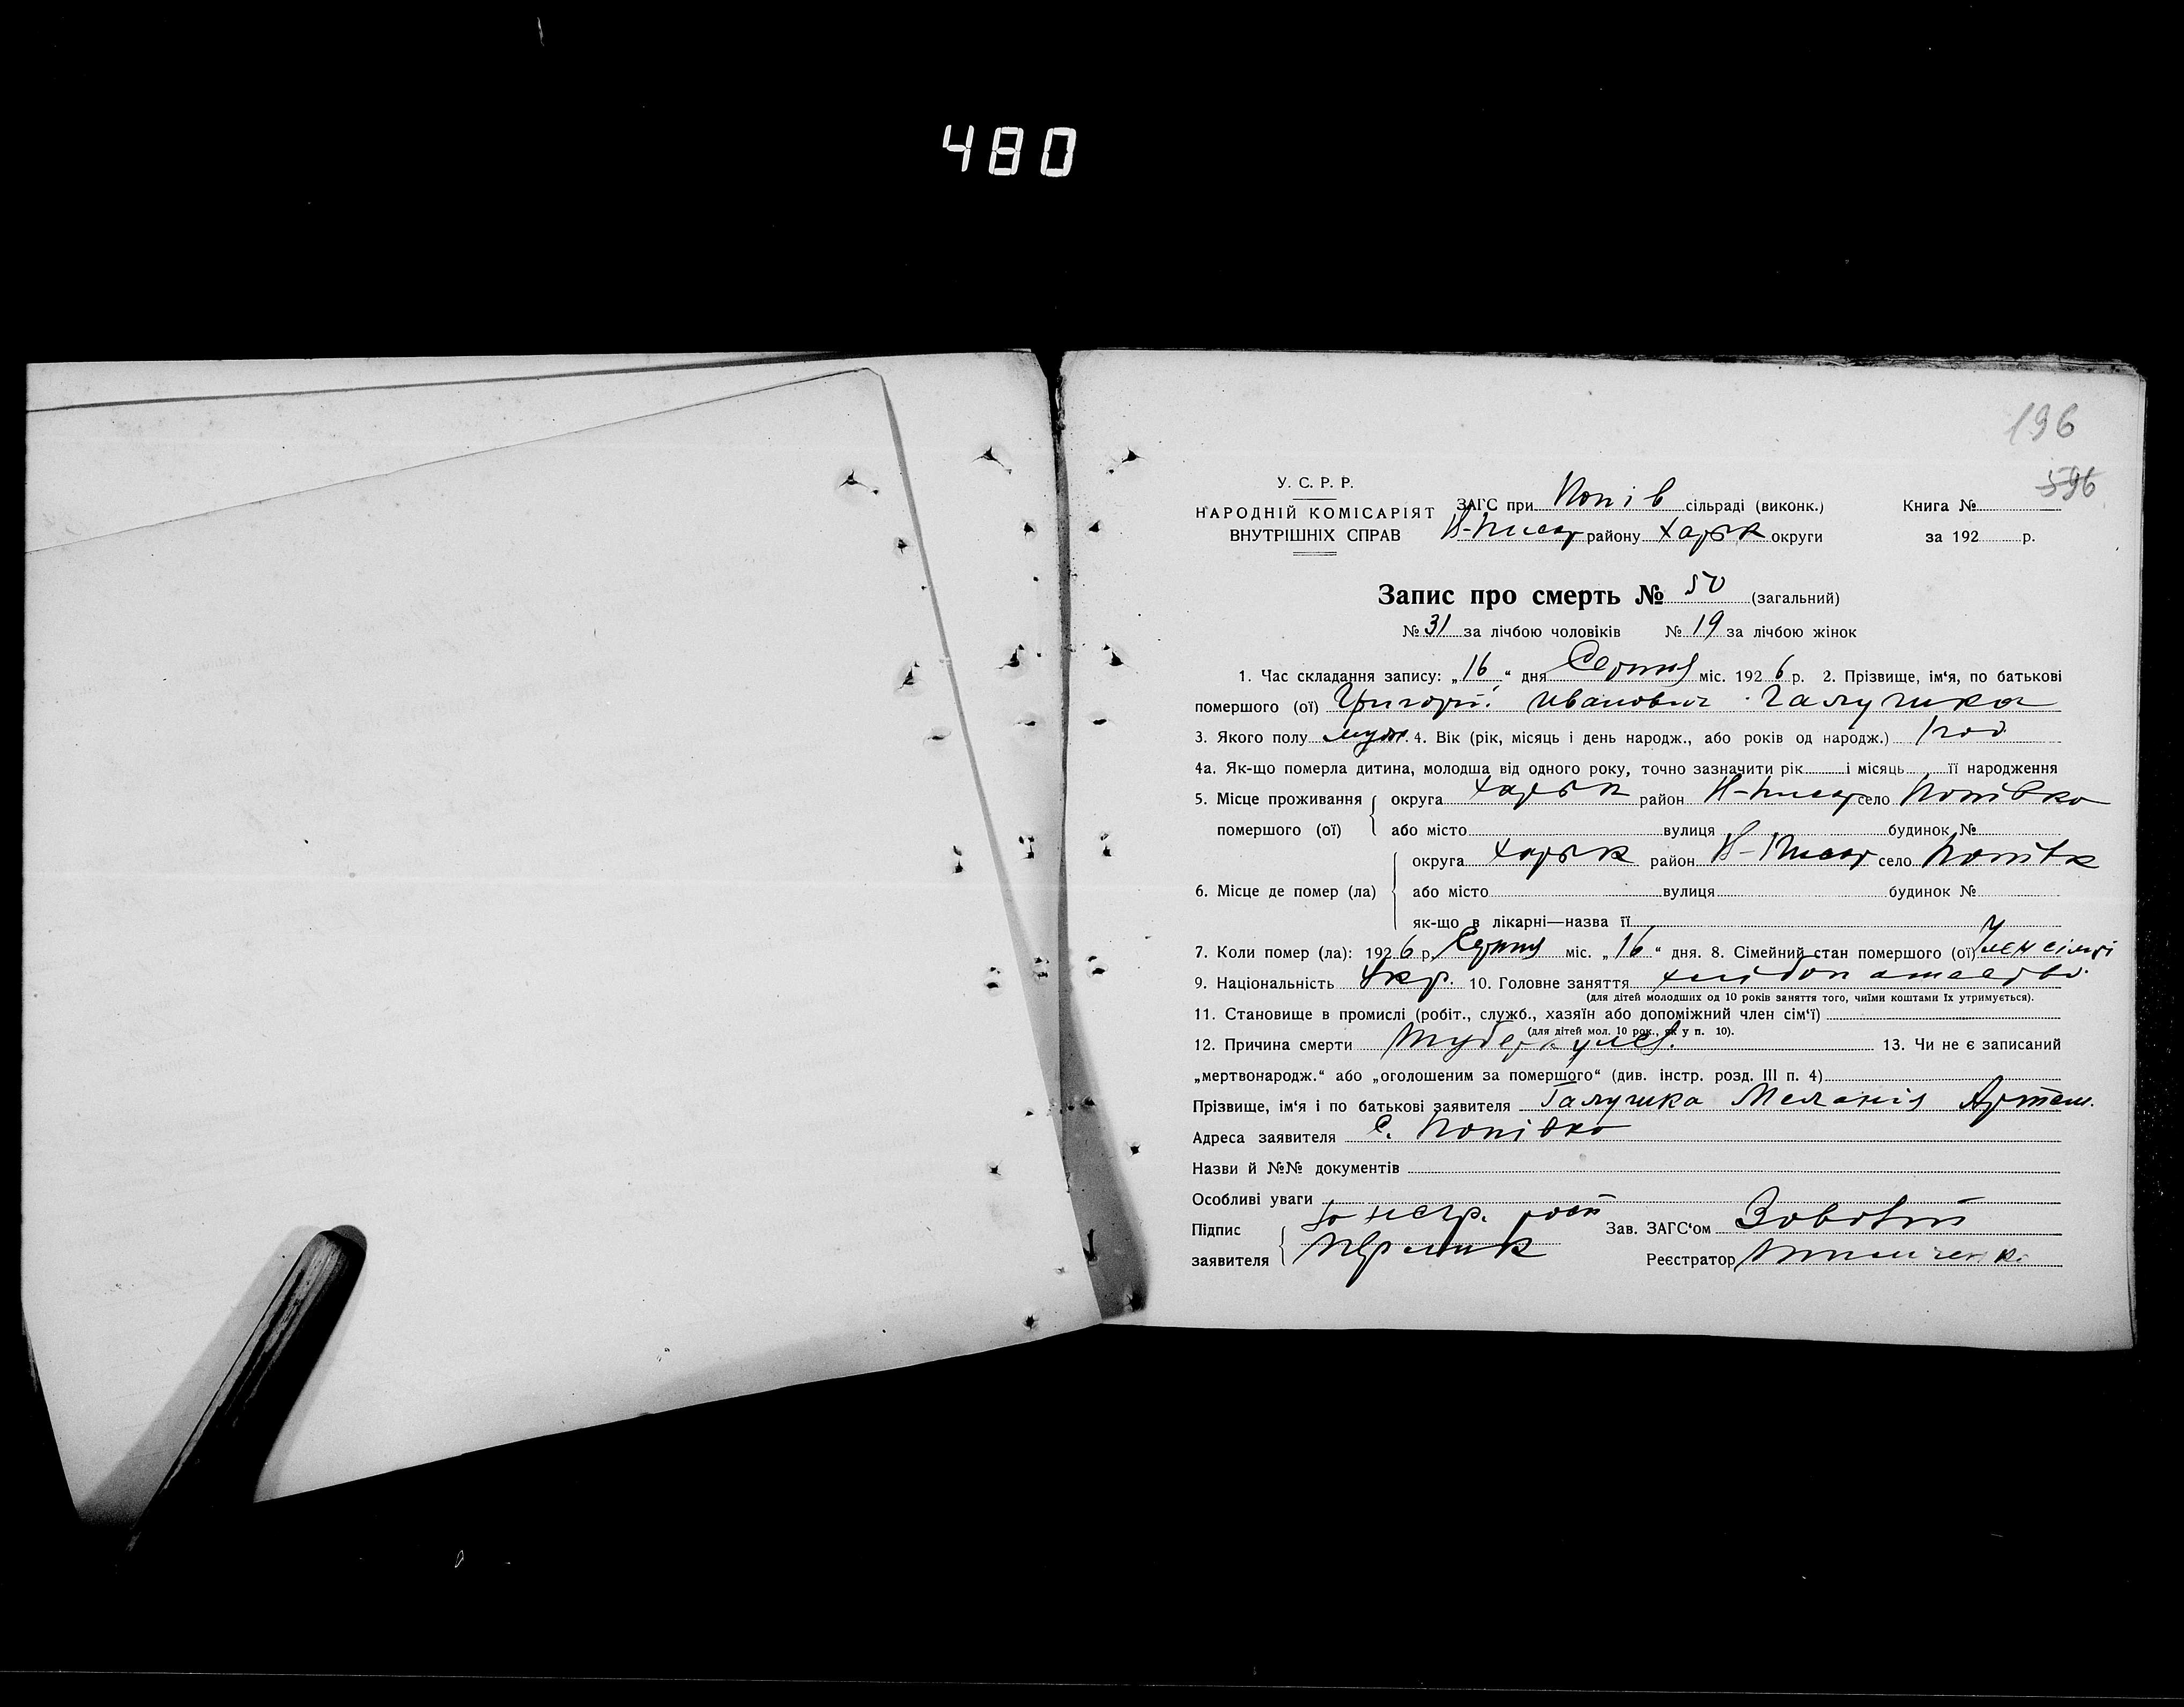 480
196
596
У. С. Р. Р.
НАРОДНІЙ КОМІСАРІЯТ
ВНУТРІШНІХ СПРАВ
ЗАГС при Попів сільраді (виконк.)
Н-Писар району Харьк округи
Книга №
за 192 р.
Запис про смерть № 50 (загальний)
№ 31 за лічбою чоловіків № 19 за лічбою жінок
1. Час складання запису: „16“ дня Серпня міс. 1926 р. 2. Прізвище, ім‘я, по батькові
помершого (ої) Григорій Иванович Галушка
3. Якого полу муж. 4. Вік (рік, місяць і день народж., або років од народж.) 1 год
4а. Як-що померла дитина, молодша від одного року, точно зазначити рік і місяць її народження
5. Місце проживання помершого (ої) округа Харьк район Н-Писар село Попівка
або місто вулиця будинок №
6. Місце де помер (ла) округа Харьк район Н-Писар село Попівк
або місто вулиця будинок №
як-що в лікарні—назва її
7. Коли помер (ла): 1926 р. Серпня міс. „16“ дня. 8. Сімейний стан помершого (ої) Член сімʼі
9. Національність Укр. 10. Головне заняття
(для дітей молодших од 10 років заняття того, чиїми коштами їх утримується).
11. Становище в промислі (робіт., служб., хазяїн або допоміжний член сім‘ї)
(для дітей мол. 10 рок., як у п. 10).
12. Причина смерти Туберкульоз. 13. Чи не є записаний
„мертвонародж.“ або „оголошеним за помершого“ (див. інстр. розд. III п. 4)
Прізвище, ім‘я і по батькові заявителя Галушка Меланія Артем.
Адреса заявителя С. Попівка
Назви й №№ документів
Особливі уваги
Підпис заявителя За негр.
Зав. ЗАГС‘ом
Реєстратор